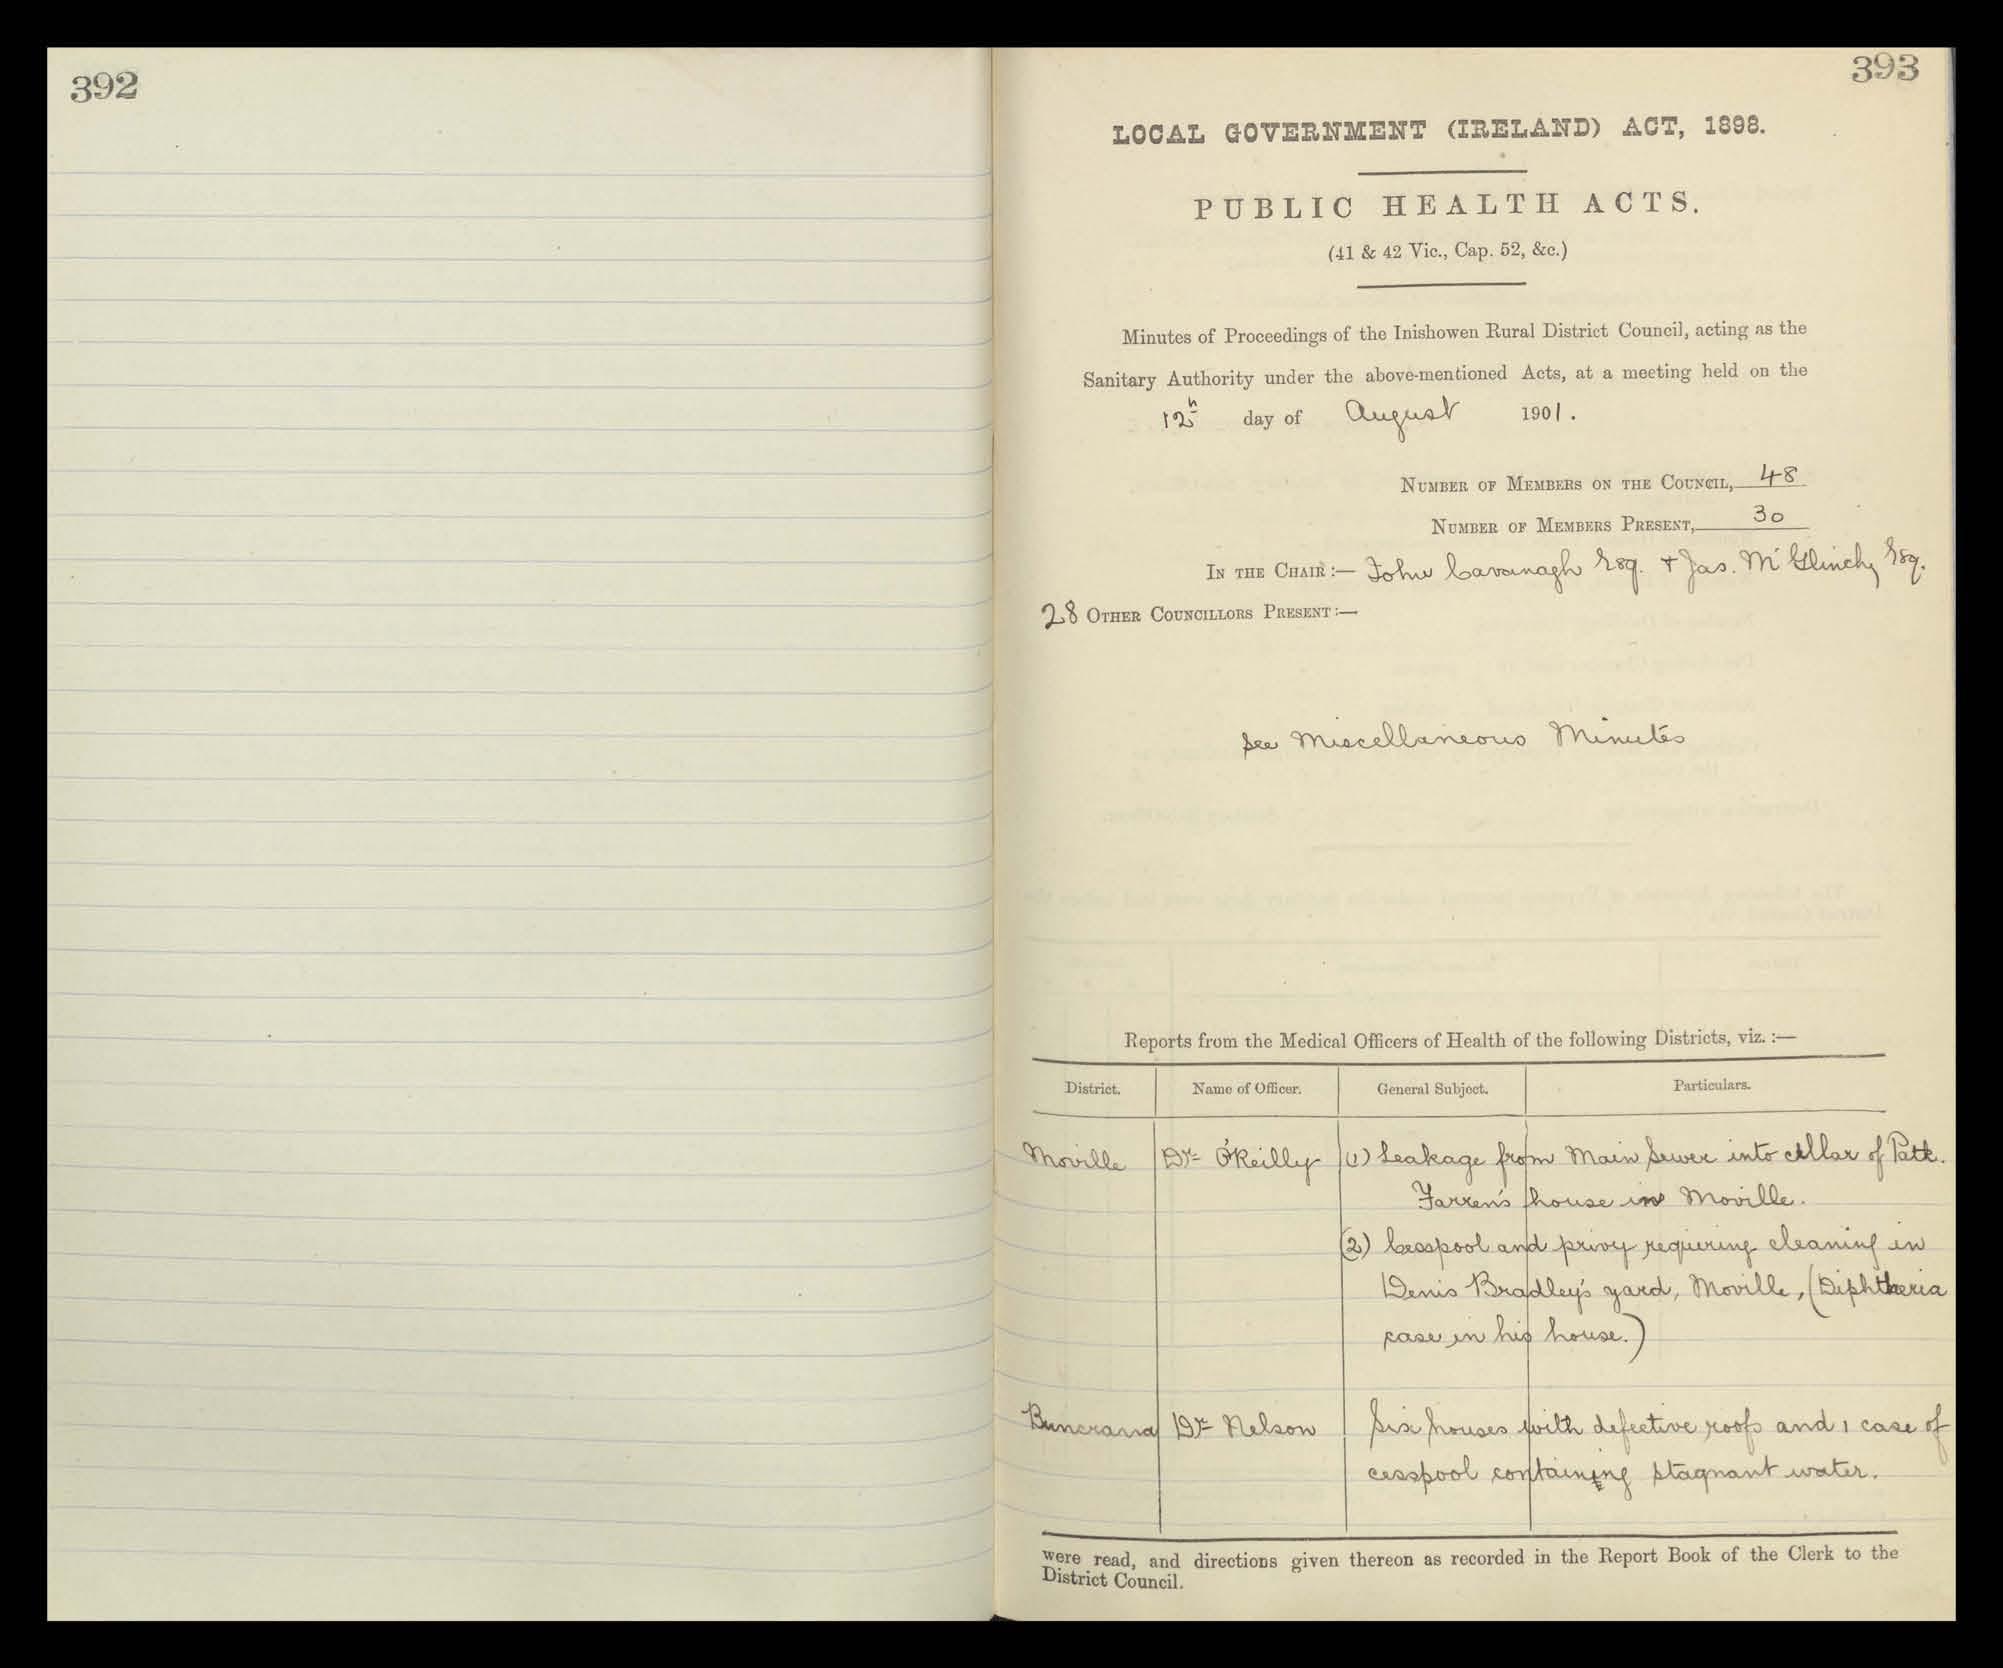 392
393
LOCAL GOVERNMENT (IRELAND) ACT, 1898.
PUBLIC HEALTH ACTS.
(41 & 42 Vic., Cap. 52, &c.)
Minutes of Proceedings of the Inishowen Rural District Council, acting as the
Sanitary Authority under the above-mentioned Acts, at a meeting held on the
12th day of August 1901.
NUMBER OF MEMBERS ON THE COUNCIL, 48
NUMBER OF MEMBERS PRESENT, 30
IN THE CHAIR:— John Cavanagh Esq. + Jas. McGlinchy Esq.
28 OTHER COUNCILLORS PRESENT:—
See Miscellaneous Minutes
Reports from the Medical Officers of Health of the following Districts, viz. :—
District. Name of Officer. General Subject. Particulars.
Moville Dr O'Reilly (1) Leakage from Main Sewer into cellar of Patk.
Farren's house in Moville.
(2) Cesspool and privy requiring cleaning in
Denis Bradley's yard, Moville, (Diphtheria
case in his house.)
Buncrana Dr Nelson Six houses with defective roofs and 1 case of
cesspool containing stagnant water.
were read, and directions given thereon as recorded in the Report Book of the Clerk to the
District Council.